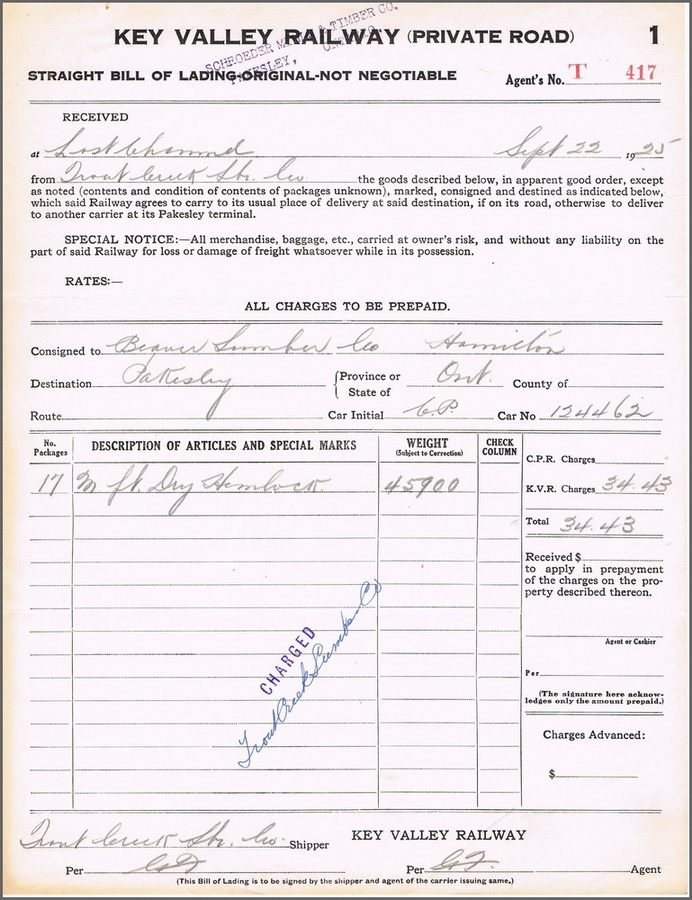 SCHROEDER MILLS & TIMBER CO.
PAKESLEY, ONTARIO.
KEY VALLEY RAILWAY (PRIVATE ROAD) 1
STRAIGHT BILL OF LADING-ORIGINAL-NOT NEGOTIABLE Agent's No. T 417
RECEIVED
at Lost Channel Sept 22 1925
from Trout Creek Lbr. Co the goods described below, in apparent good order, except
as noted (contents and condition of contents of packages unknown), marked, consigned and destined as indicated below,
which said Railway agrees to carry to its usual place of delivery at said destination, if on its road, otherwise to deliver
to another carrier at its Pakesley terminal.
SPECIAL NOTICE:—All merchandise, baggage, etc., carried at owner's risk, and without any liability on the
part of said Railway for loss or damage of freight whatsoever while in its possession.
RATES:—
ALL CHARGES TO BE PREPAID.
Consigned to Beaver Lumber Co Hamilton
Destination Pakesley {Province or State of Ont. County of
Route Car Initial C.P. Car No 124462
No. Packages DESCRIPTION OF ARTICLES AND SPECIAL MARKS WEIGHT (Subject to Correction) CHECK COLUMN
17 M ft. Dry Hemlock 45900
C.P.R. Charges
K.V.R. Charges 34.43
Total 34.43
Received $
to apply in prepayment
of the charges on the pro-
perty described thereon.
Agent or Cashier
Per
(The signature here acknow-
ledges only the amount prepaid.)
Charges Advanced:
$
CHARGED
Trout Creek Lumber Co
Trout Creek Lbr. Co. Shipper KEY VALLEY RAILWAY
Per Per Agent
(This Bill of Lading is to be signed by the shipper and agent of the carrier issuing same.)